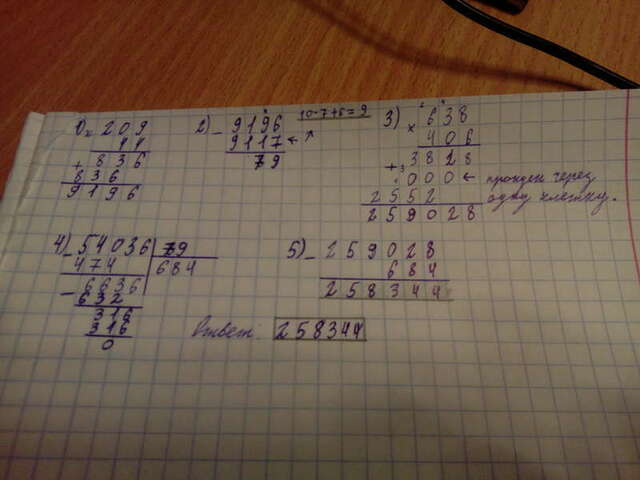 1) × 209
44
+ 836
836
9196
2) - 9196
9117 ←
79
10-7+6=9
3) × 638
406
+ 3828
000 ← пройден через
2552 одну клетку.
259028
4) - 54036 | 79
474 684
- 6636
632
316
316
0
5) - 259028
684
258344
Ответ: 258344